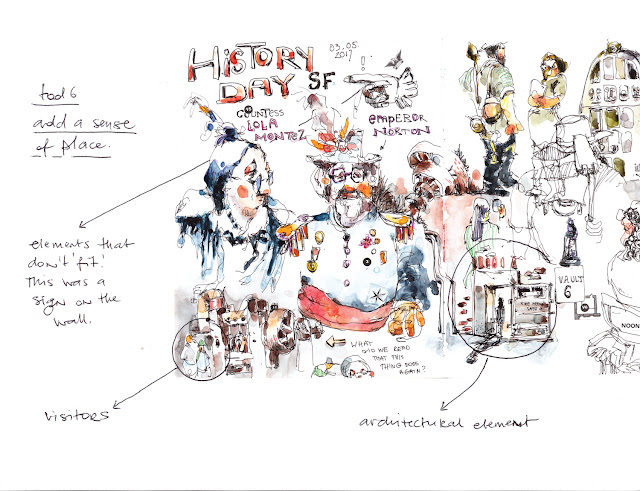 HISTORY
DAY SF
03.05.
2017
!
COUNTESS
LOLA
MONTEZ
EMPEROR
NORTON
tool 6
add a sense
of place.
elements that
don't 'fit'!
This was a
sign on the
wall.
VAULT
6
NOON
WHAT
DID WE READ
THAT THIS
THING DOES
AGAIN?
visitors
architectural element